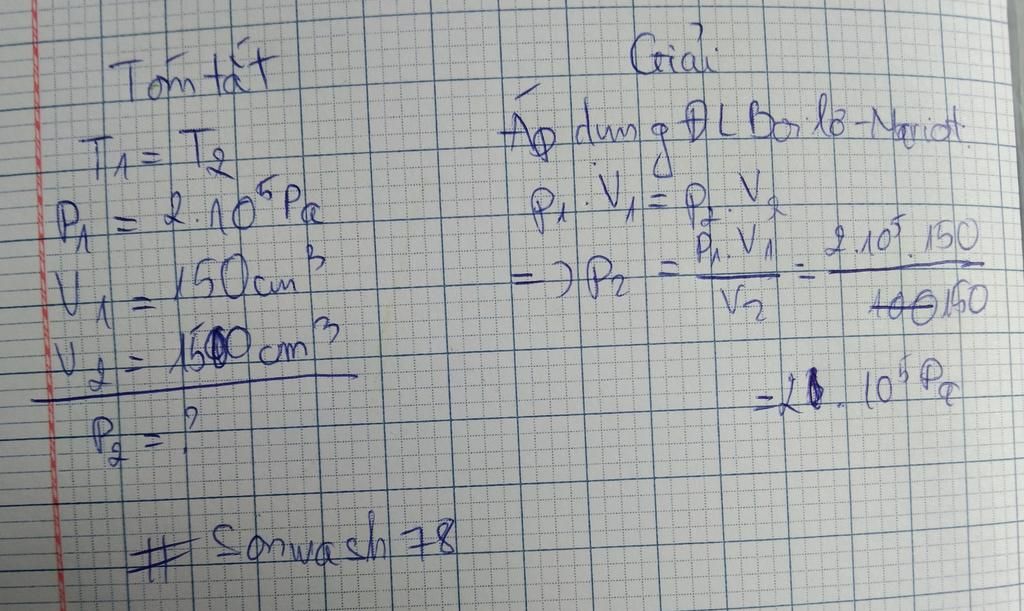 Tóm tắt
T1 = T2
P1 = 2.10^5 Pa
V1 = 150 cm^3
V2 = 150 cm^3
P2 = ?
# Sonwash 78
Giải
Áp dụng ĐL Bôi lơ - Mariot
P1.V1 = P2.V2
=> P2 = P1.V1 / V2 = 2.10^5.150 / 150
= 2.10^5 Pa